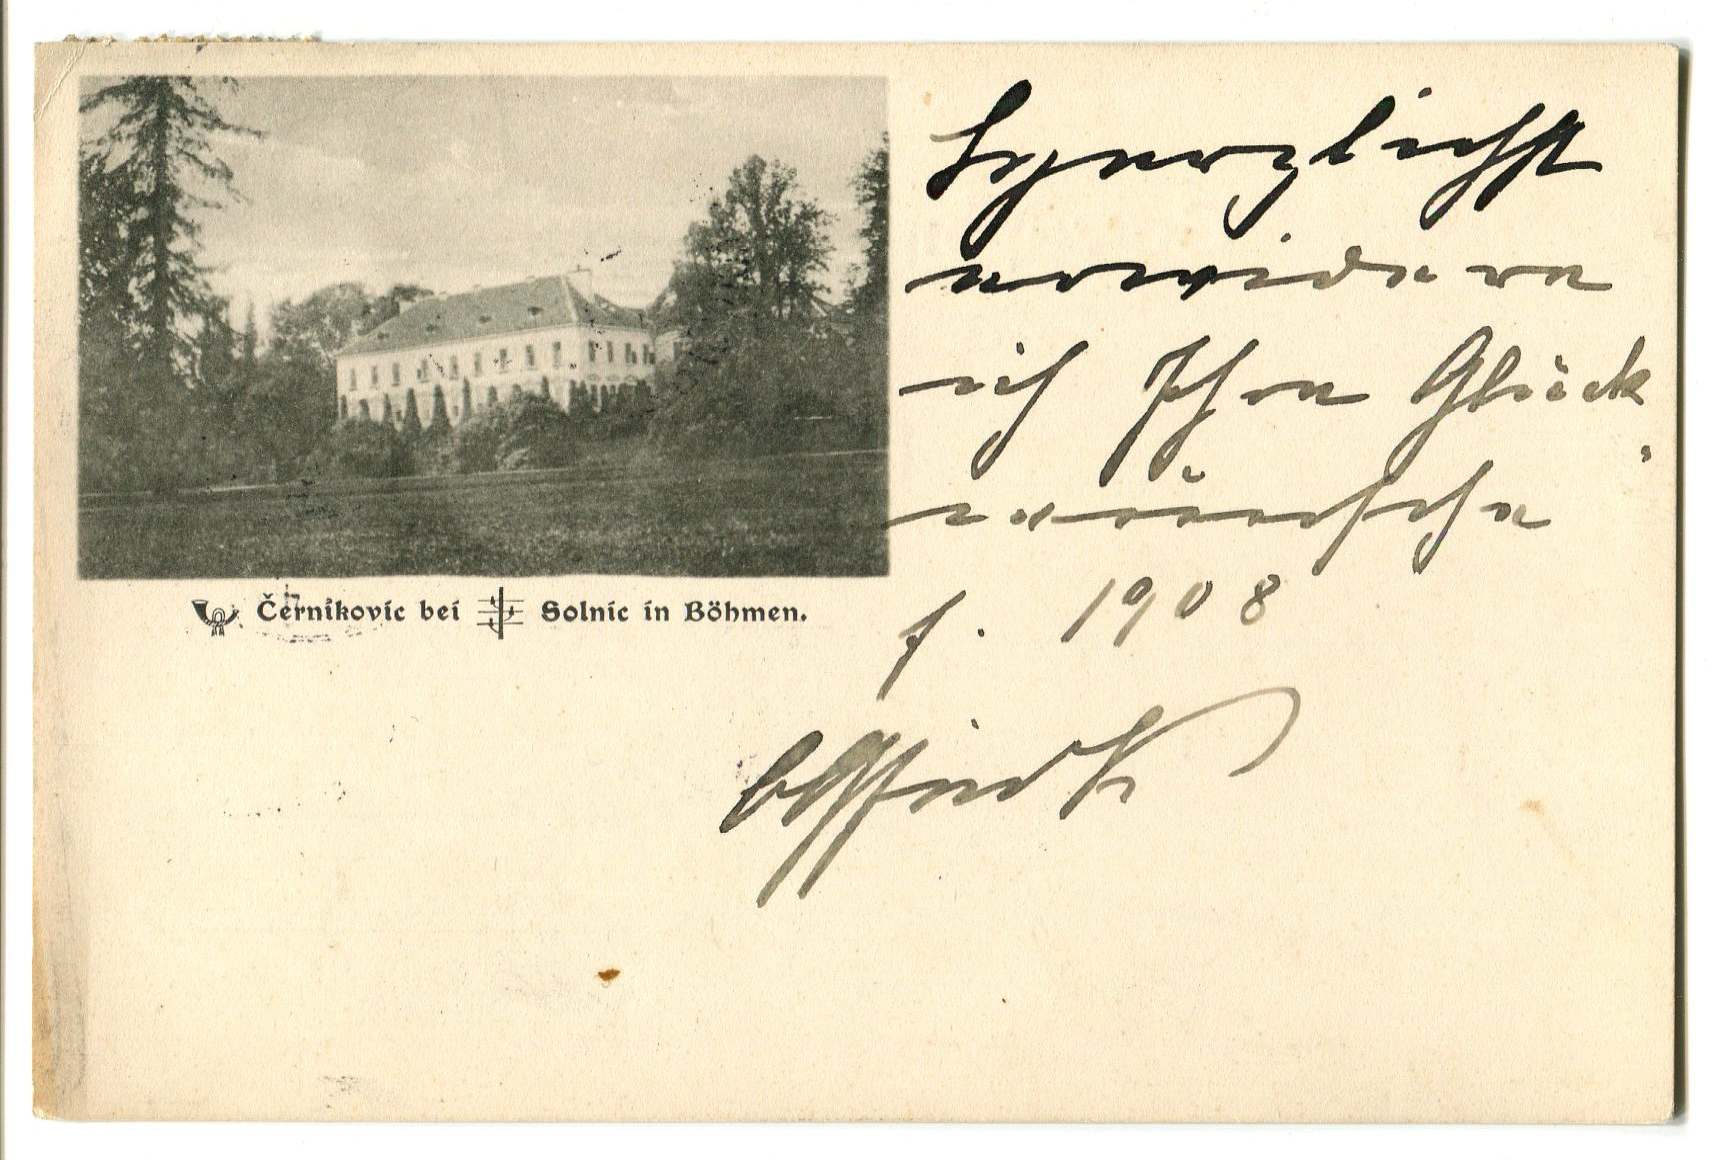 Černikovic bei Solnic in Böhmen.
Herzlichst
erwidere
ich Ihre Glück
wünsche
f. 1908